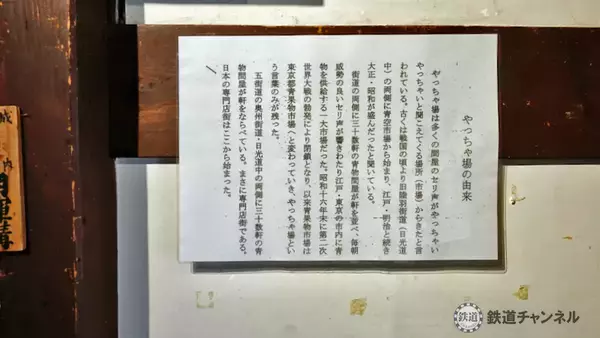 やっちゃ場の由来
やっちゃ場は多くの問屋のセリ声がやっちゃい
やっちゃいと聞こえてくる場所（市場）からきたと言
われている。古くは戦国の頃より旧陸羽街道（日光道
中）の両側に青空市場から始まり、江戸・明治と続き
大正・昭和が盛んだったと聞いている。
街道の両側に三十数軒の青物問屋が軒を並べ、毎朝
威勢の良いセリ声が響きわたり江戸・東京の市内に青
物を供給する一大市場だった。昭和十六年末に第二次
世界大戦の勃発により閉鎖となり、以来青果物市場は
東京都青果物市場へと変わっていき、やっちゃ場とい
う言葉のみが残った。
五街道の奥州街道・日光道中の両側に三十数軒の青
物問屋が軒をならべている。まさに専門店街である。
日本の専門店街はここから始まった。
鉄道 鉄道チャンネル